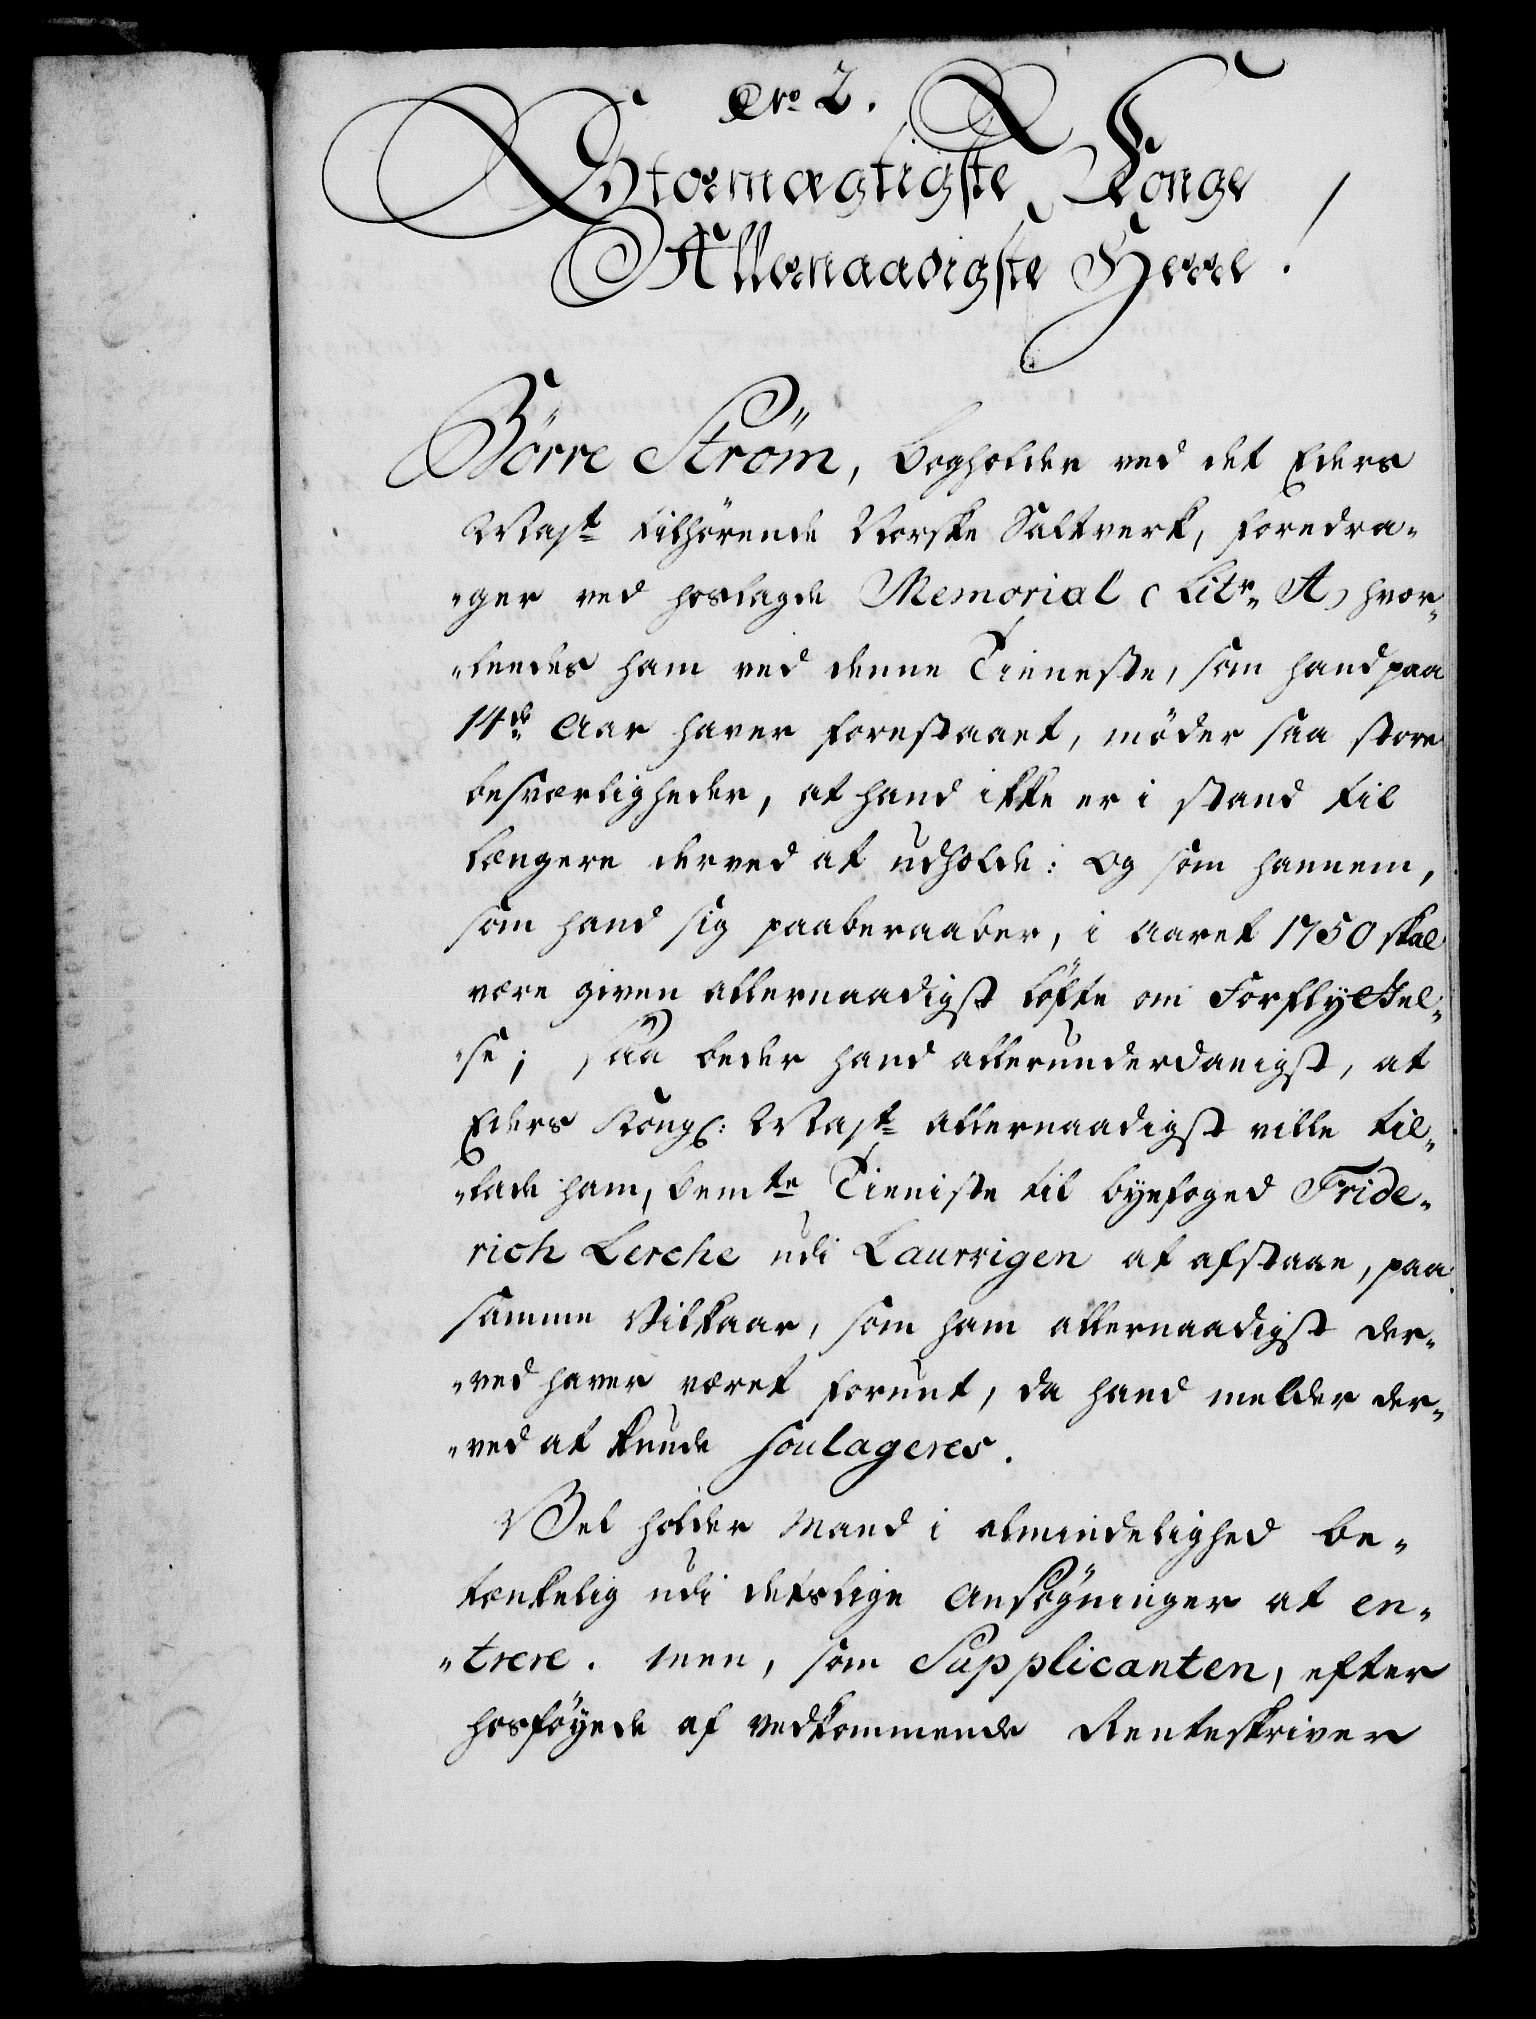 No 2.
Stormægtigste Konge
Allernaadigste Herre!
Börre Ström, Bogholder ved det Eders
Mayst tilhörende Norske Saltverk, foredra-
-ger ved hoslagde Memorial (Litr. A) hvor-
-leedes ham ved denne Tieneste, som hand paa
14de Aar haver forestaaet, möder saa store
besværligheder, at hand ikke er i stand til
længere derved at udholde: Og som hannem,
som hand sig paaberaaber, i Aaret 1750 skal
være given allernaadigst löfte om Forflyttel-
-se; saa beder hand allerunderdanigst, at
Eders Kongl: Mayst allernaadigst ville til-
-lade ham, bemte Tieniste til byefoged Fride-
rich Lerche udi Laurvigen at afstaae, paa
samme Vilkaar, som ham allernaadigst der-
-ved haver været forunt, da hand melder der-
-ved at kunde soulageres.
Vel holder Mand i almindelighed be-
tænkelig udi deslige Ansøgninger at en-
-trere. Men, som Supplicanten, efter
hosföyede af Vedkommende Renteskriver